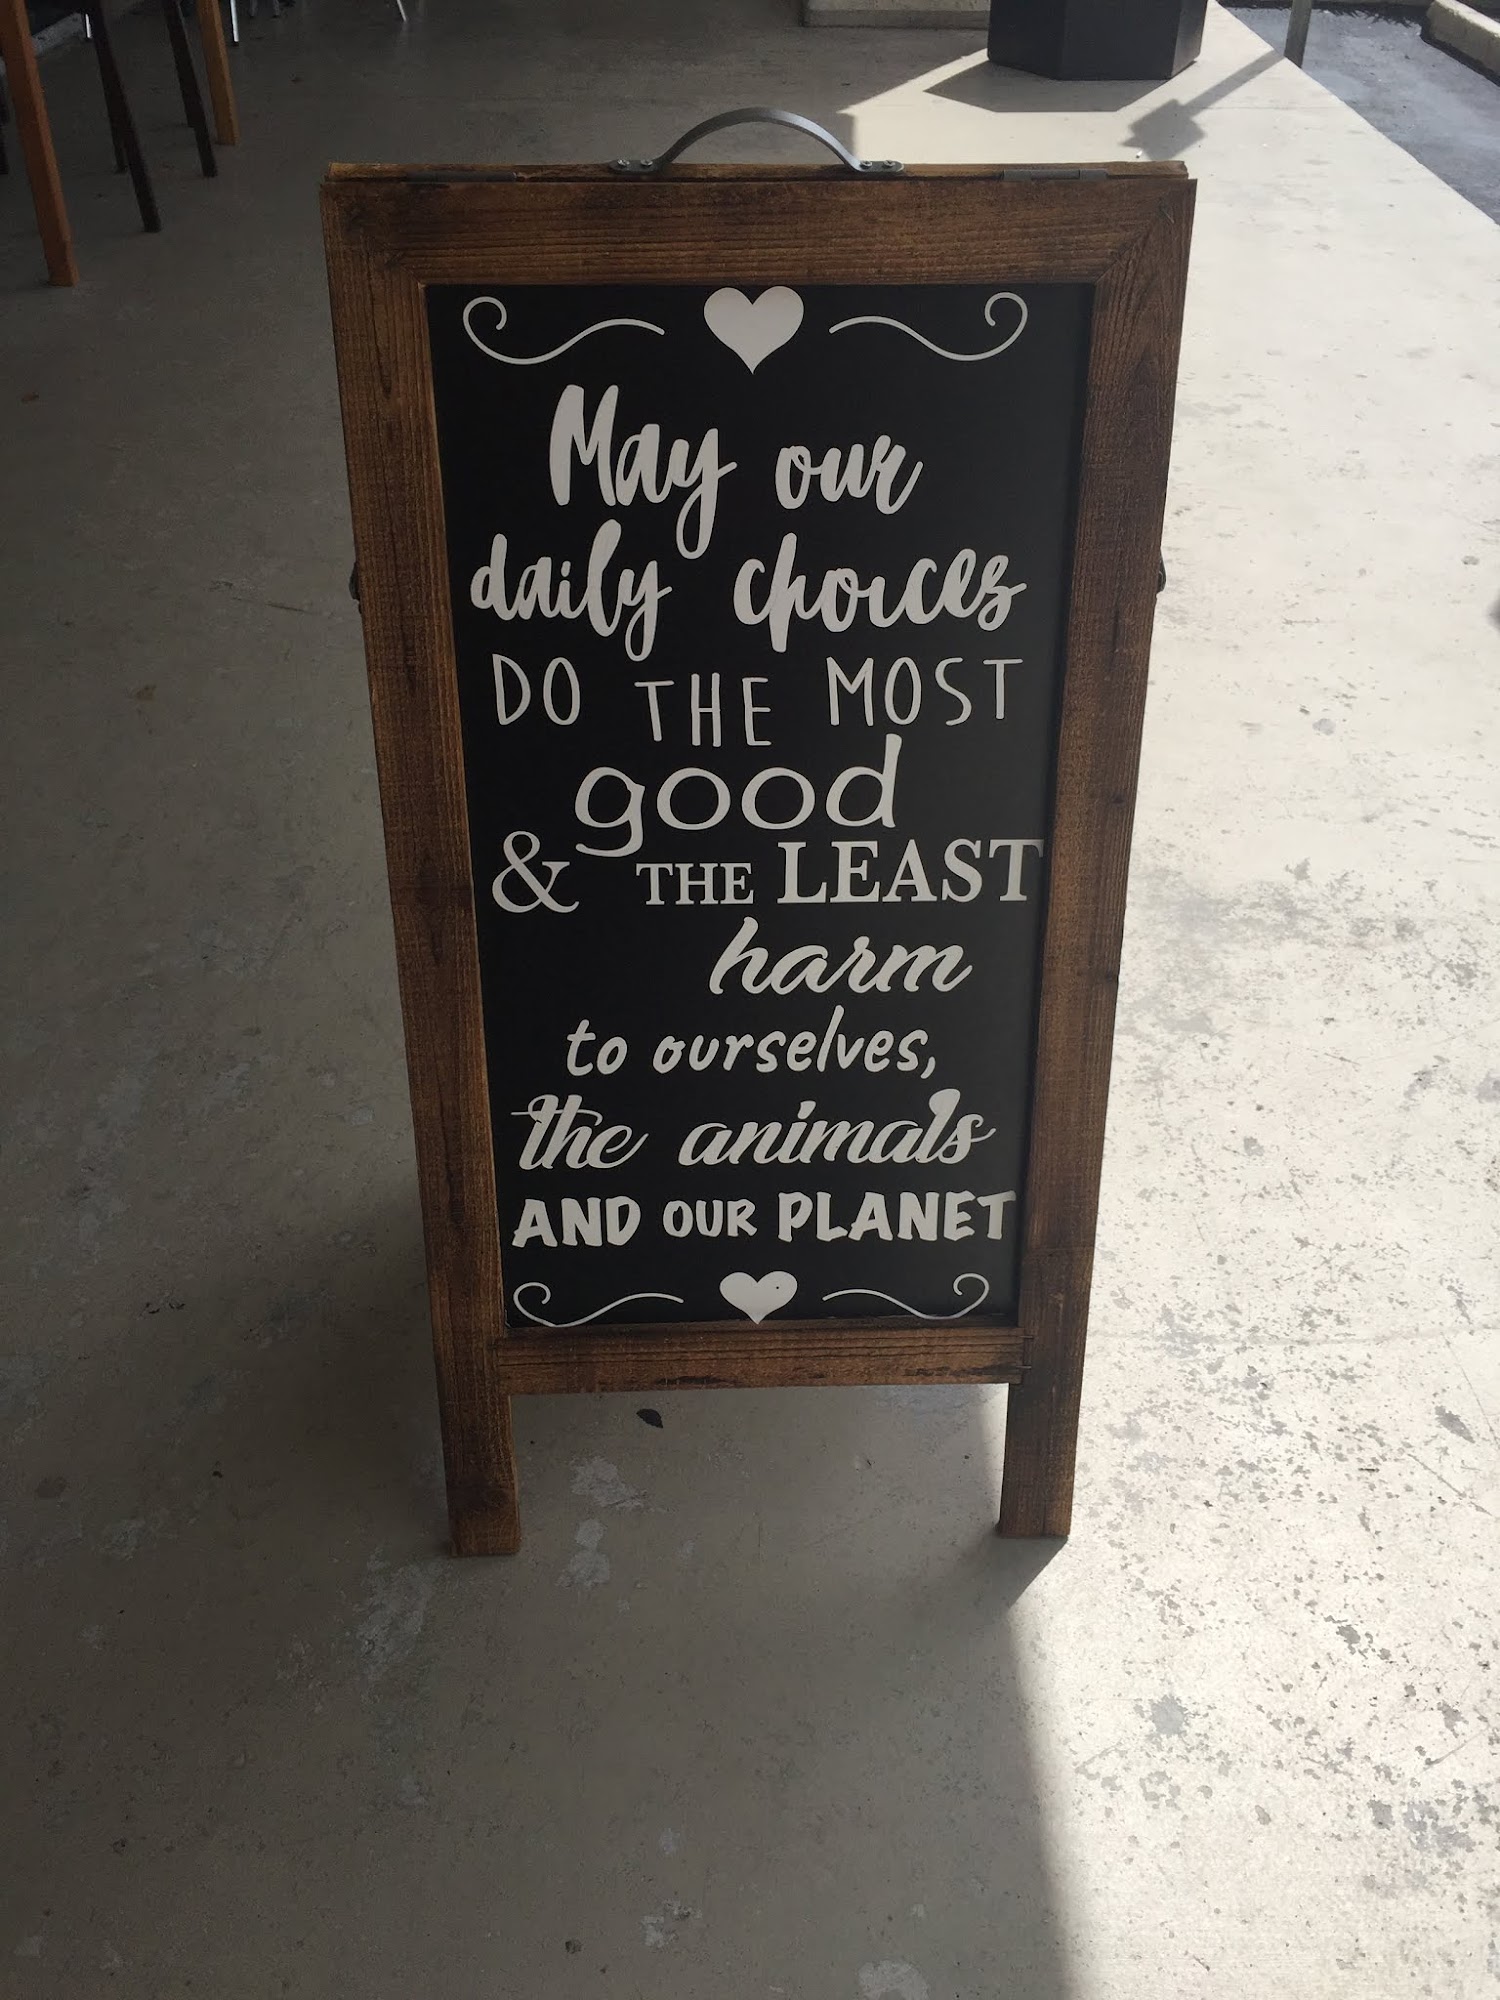 May our
daily choices
DO THE MOST
good
& THE LEAST
harm
to ourselves,
the animals
AND OUR PLANET